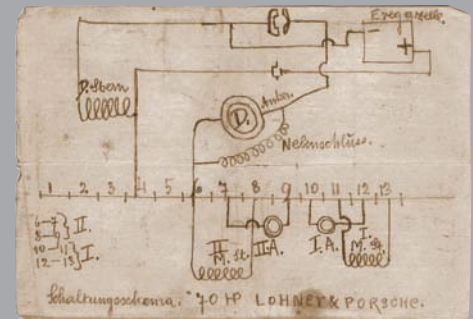 − +
D. Stern
D. Anker.
Nebenschluss.
1 2 3 4 5 6 7 8 9 10 11 12 13
6–7
8–9 } II.
10–11
12–13 } I.
II M. St. II.A. I.A. I. M. St.
Schaltungsschema. 70 HP LOHNER & PORSCHE.